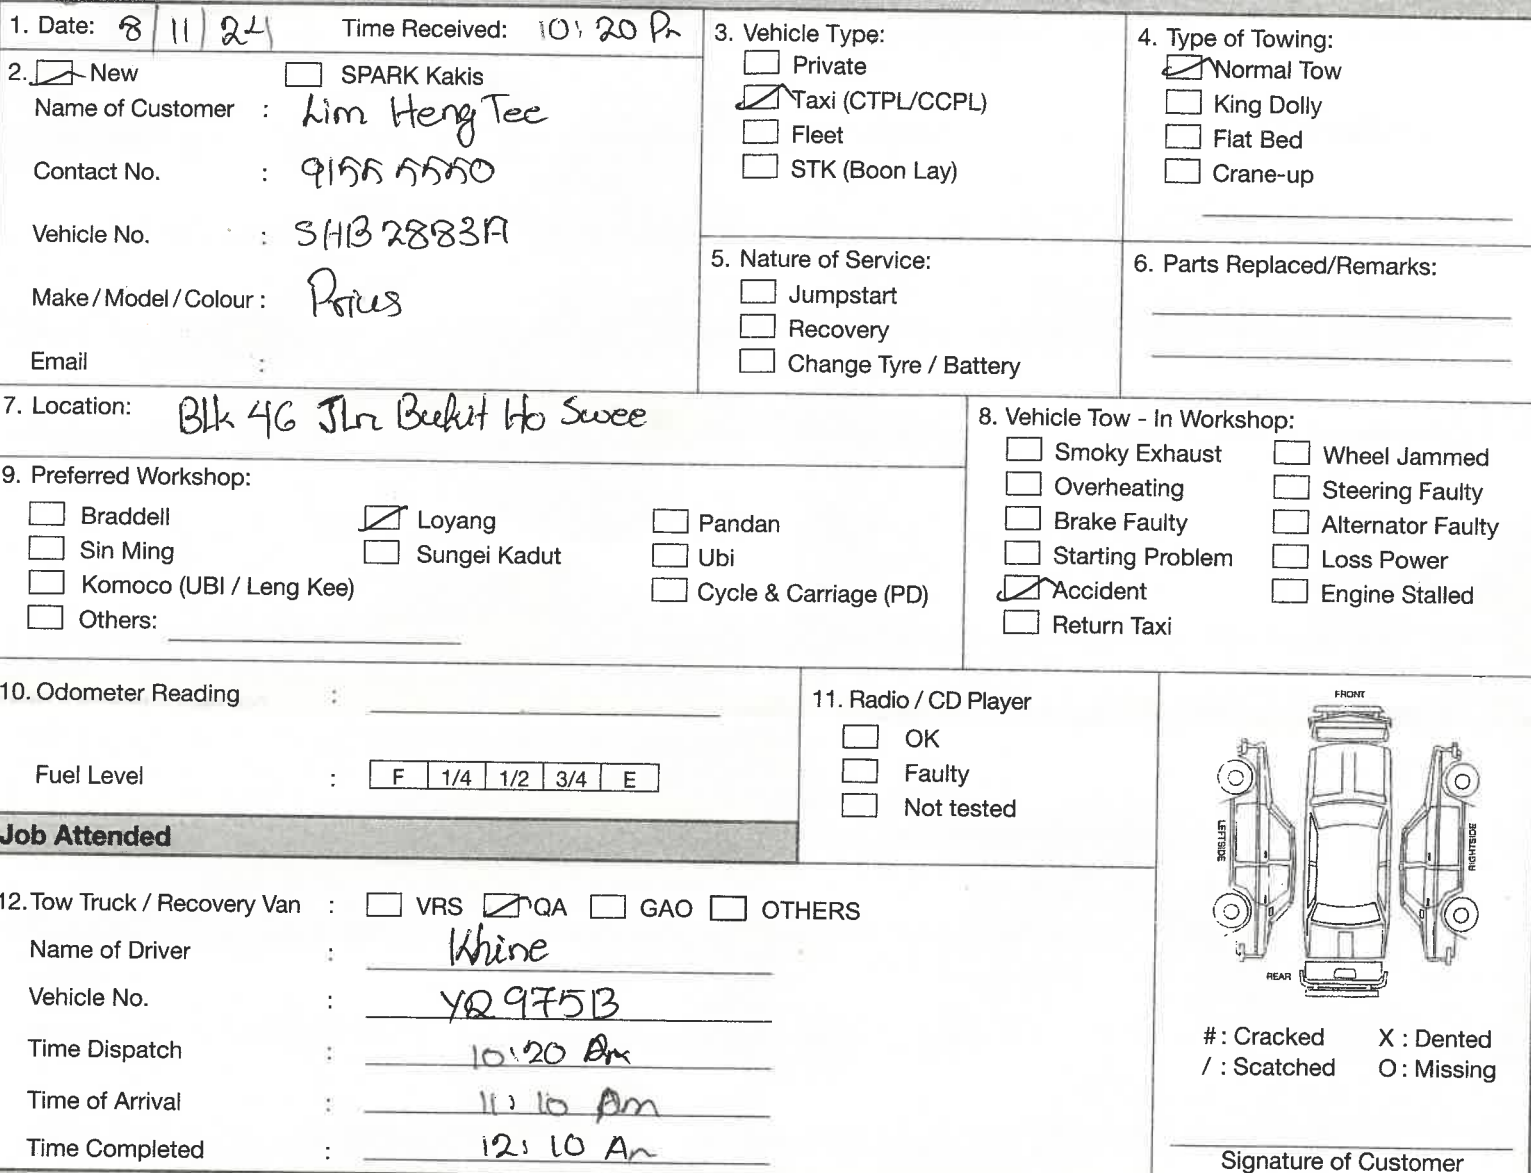 1. Date: 8/11/24 Time Received: 10:20 Pm
2. New SPARK Kakis
Name of Customer : Lim Heng Tee
Contact No. : 9155 5550
Vehicle No. : SHB2883A
Make / Model / Colour : Prius
Email :
3. Vehicle Type:
Private
Taxi (CTPL/CCPL)
Fleet
STK (Boon Lay)
4. Type of Towing:
Normal Tow
King Dolly
Flat Bed
Crane-up
5. Nature of Service:
Jumpstart
Recovery
Change Tyre / Battery
6. Parts Replaced/Remarks:
7. Location: Blk 46 Jln Bukit Ho Swee
8. Vehicle Tow - In Workshop:
Smoky Exhaust Wheel Jammed
Overheating Steering Faulty
Brake Faulty Alternator Faulty
Starting Problem Loss Power
Accident Engine Stalled
Return Taxi
9. Preferred Workshop:
Braddell Loyang Pandan
Sin Ming Sungei Kadut Ubi
Komoco (UBI / Leng Kee) Cycle & Carriage (PD)
Others:
10. Odometer Reading :
Fuel Level : F 1/4 1/2 3/4 E
11. Radio / CD Player
OK
Faulty
Not tested
FRONT
LEFTSIDE
RIGHTSIDE
REAR
#: Cracked X : Dented
/ : Scatched O : Missing
Signature of Customer
Job Attended
12. Tow Truck / Recovery Van : VRS QA GAO OTHERS
Name of Driver : Khine
Vehicle No. : YQ975B
Time Dispatch : 10:20
Time of Arrival : 11:10 Am
Time Completed : 12:10 Am